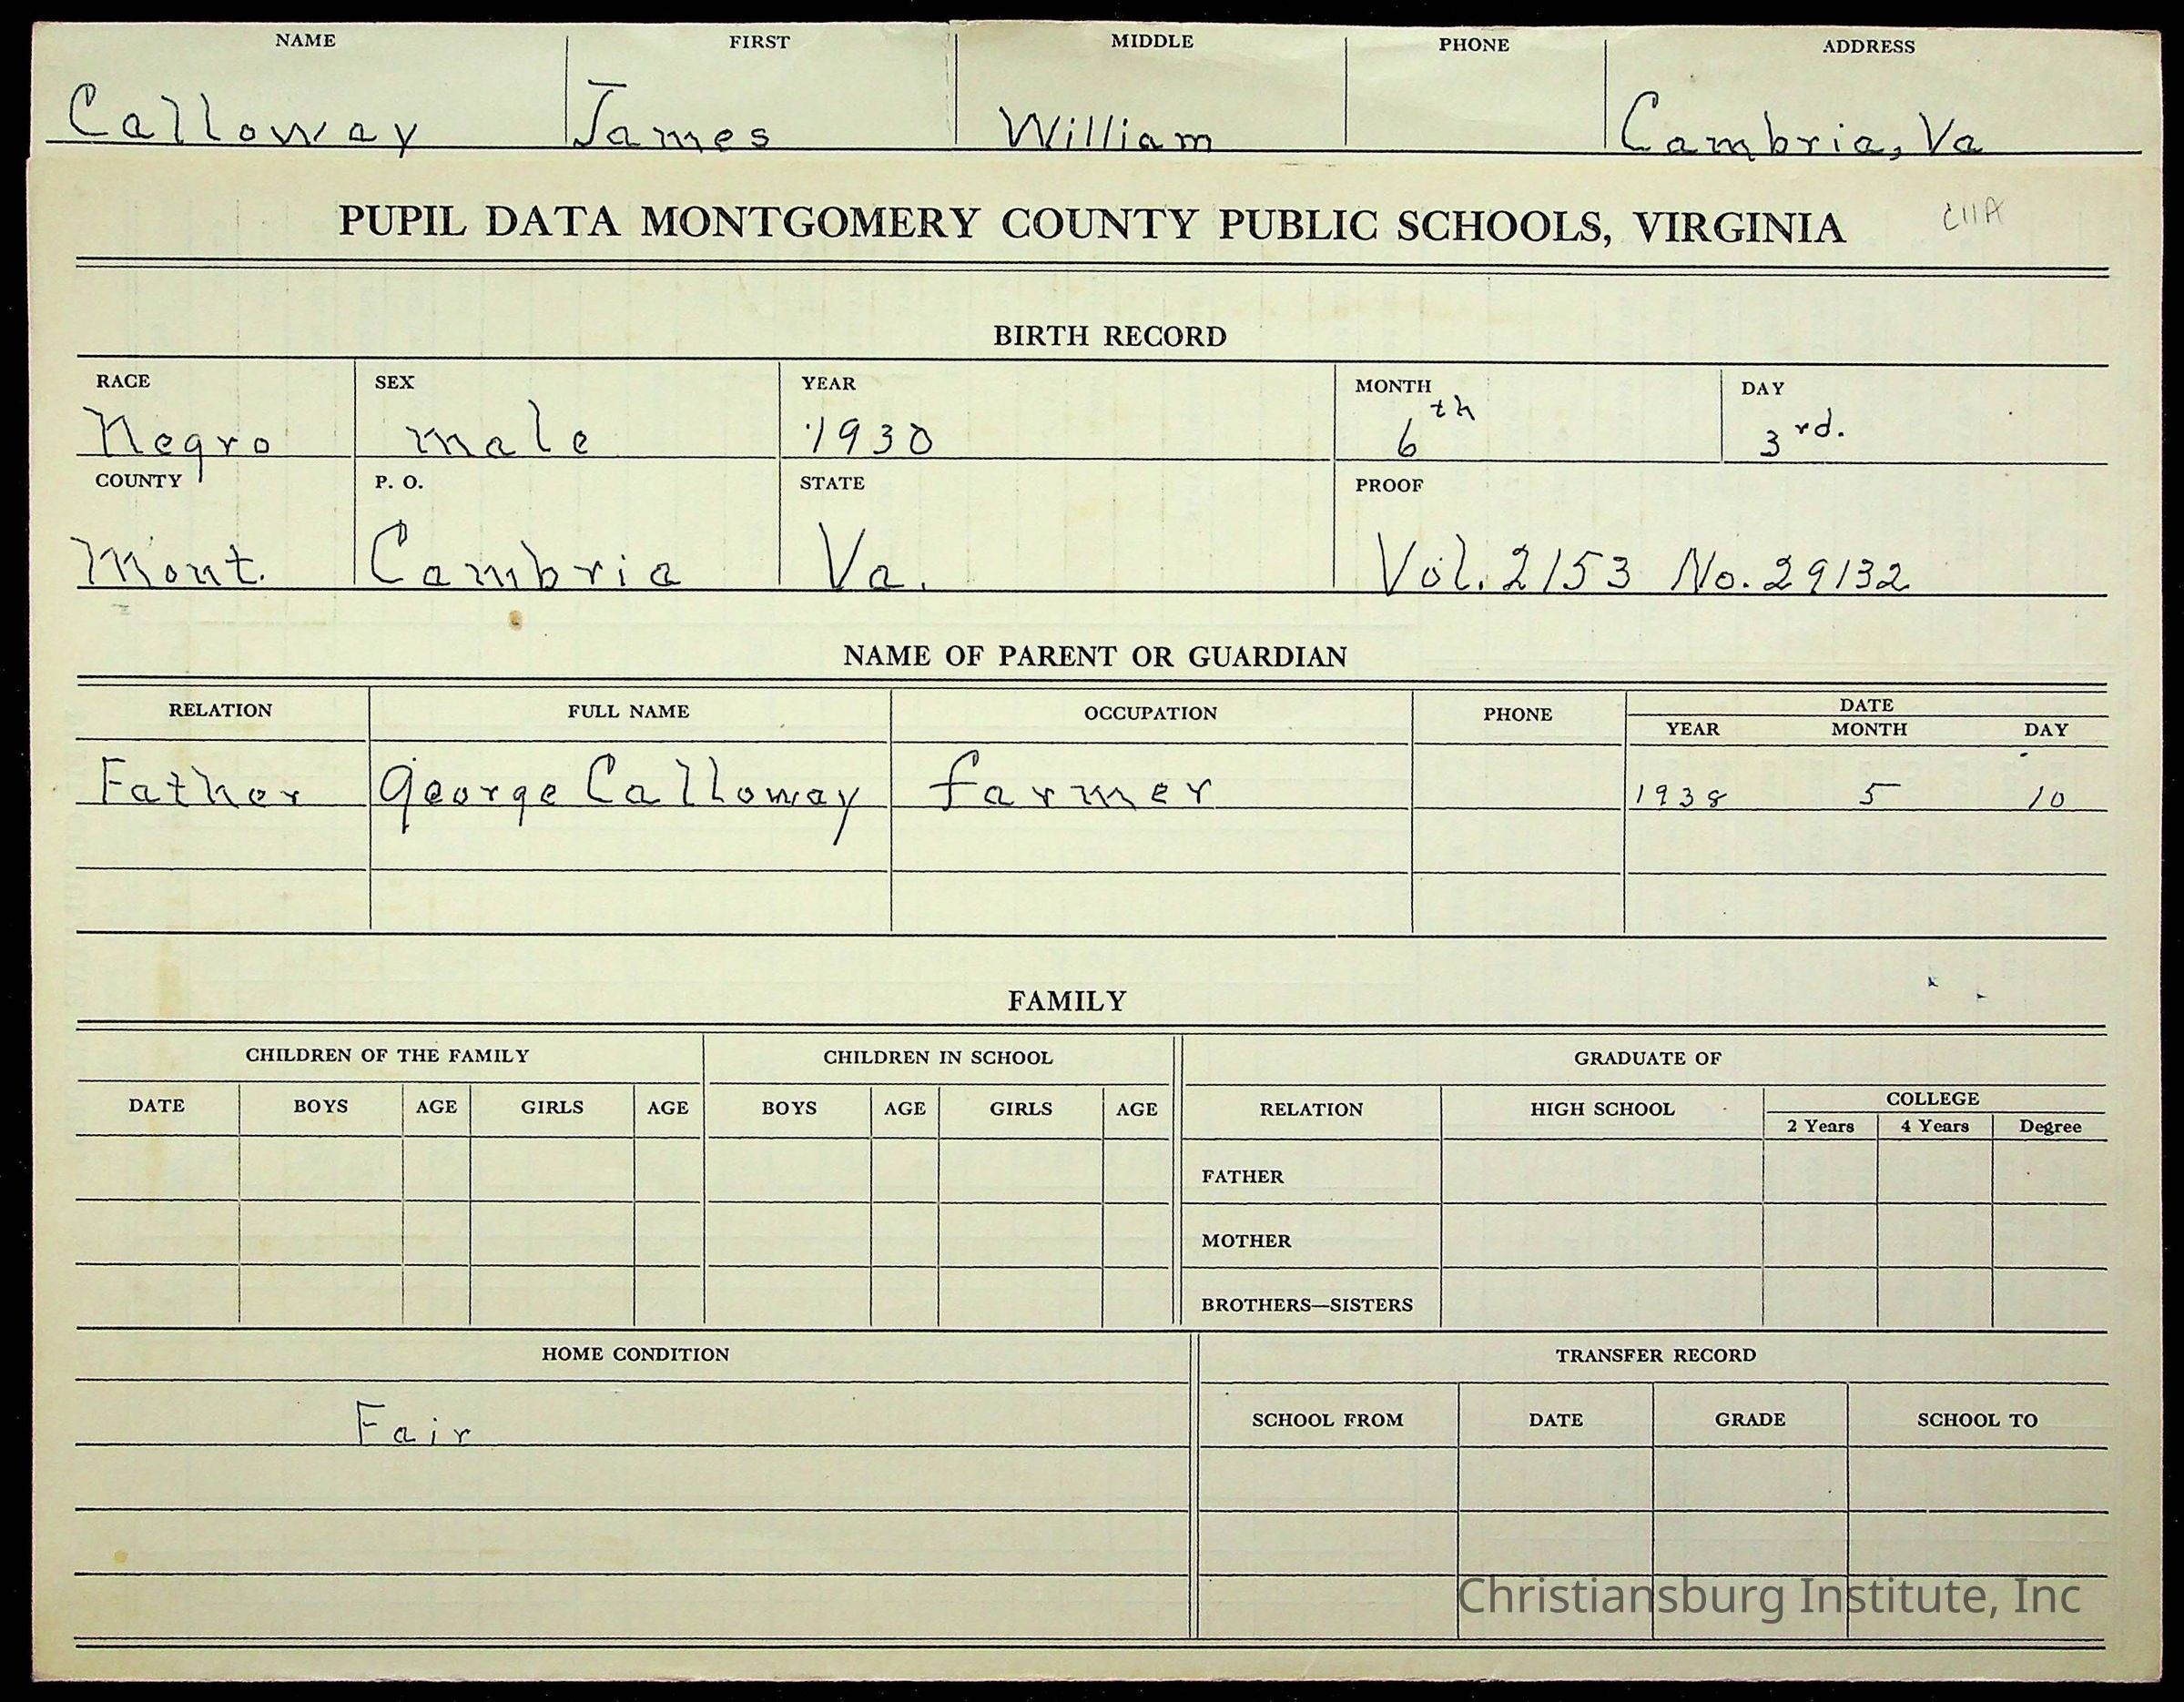 NAME FIRST MIDDLE PHONE ADDRESS
Calloway James William Cambria, Va
PUPIL DATA MONTGOMERY COUNTY PUBLIC SCHOOLS, VIRGINIA C11A
BIRTH RECORD
RACE SEX YEAR MONTH DAY
Negro male 1930 6th 3rd.
COUNTY P. O. STATE PROOF
Mont. Cambria Va. Vol. 2153 No. 29132
NAME OF PARENT OR GUARDIAN
RELATION FULL NAME OCCUPATION PHONE DATE
YEAR MONTH DAY
Father George Calloway farmer 1938 5 10
FAMILY
CHILDREN OF THE FAMILY CHILDREN IN SCHOOL GRADUATE OF
DATE BOYS AGE GIRLS AGE BOYS AGE GIRLS AGE RELATION HIGH SCHOOL COLLEGE
2 Years 4 Years Degree
FATHER
MOTHER
BROTHERS—SISTERS
HOME CONDITION TRANSFER RECORD
Fair SCHOOL FROM DATE GRADE SCHOOL TO
Christiansburg Institute, Inc